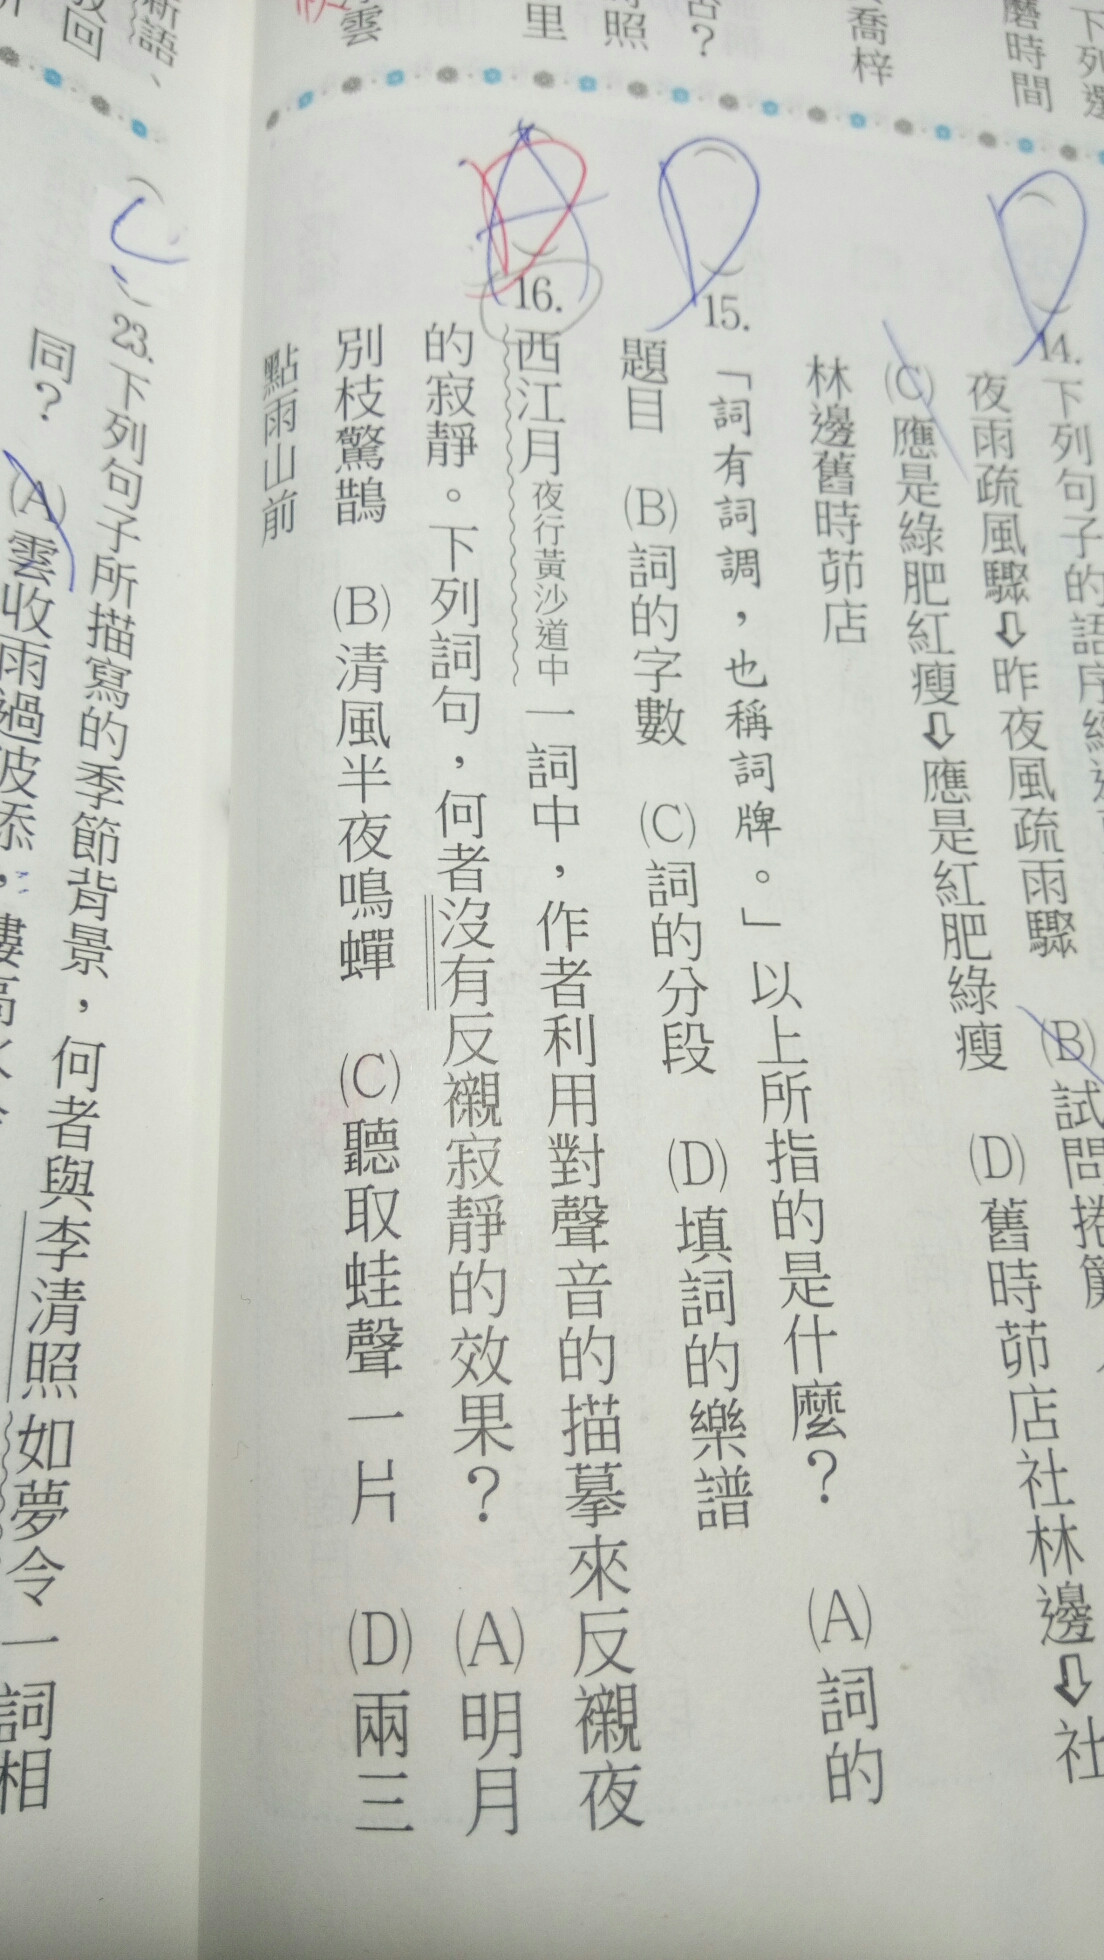 下列選
磨時間
喬梓
否?
照
里
雲
D
14.下列句子的語序經
夜雨疏風驟⇩昨夜風疏雨驟 (B)試問捲簾
(C)應是綠肥紅瘦⇩應是紅肥綠瘦 (D)舊時茆店社林邊⇩社
林邊舊時茆店
D
15.「詞有詞調,也稱詞牌。」以上所指的是什麼? (A)詞的
題目 (B)詞的字數 (C)詞的分段 (D)填詞的樂譜
A
D
16.西江月夜行黃沙道中一詞中,作者利用對聲音的描摹來反襯夜
的寂靜。下列詞句,何者沒有反襯寂靜的效果? (A)明月
別枝驚鵲 (B)清風半夜鳴蟬 (C)聽取蛙聲一片 (D)兩三
點雨山前
新語、
回
C
23.下列句子所描寫的季節背景,何者與李清照如夢令一詞相
同? (A)雲收雨過波添,樓高水